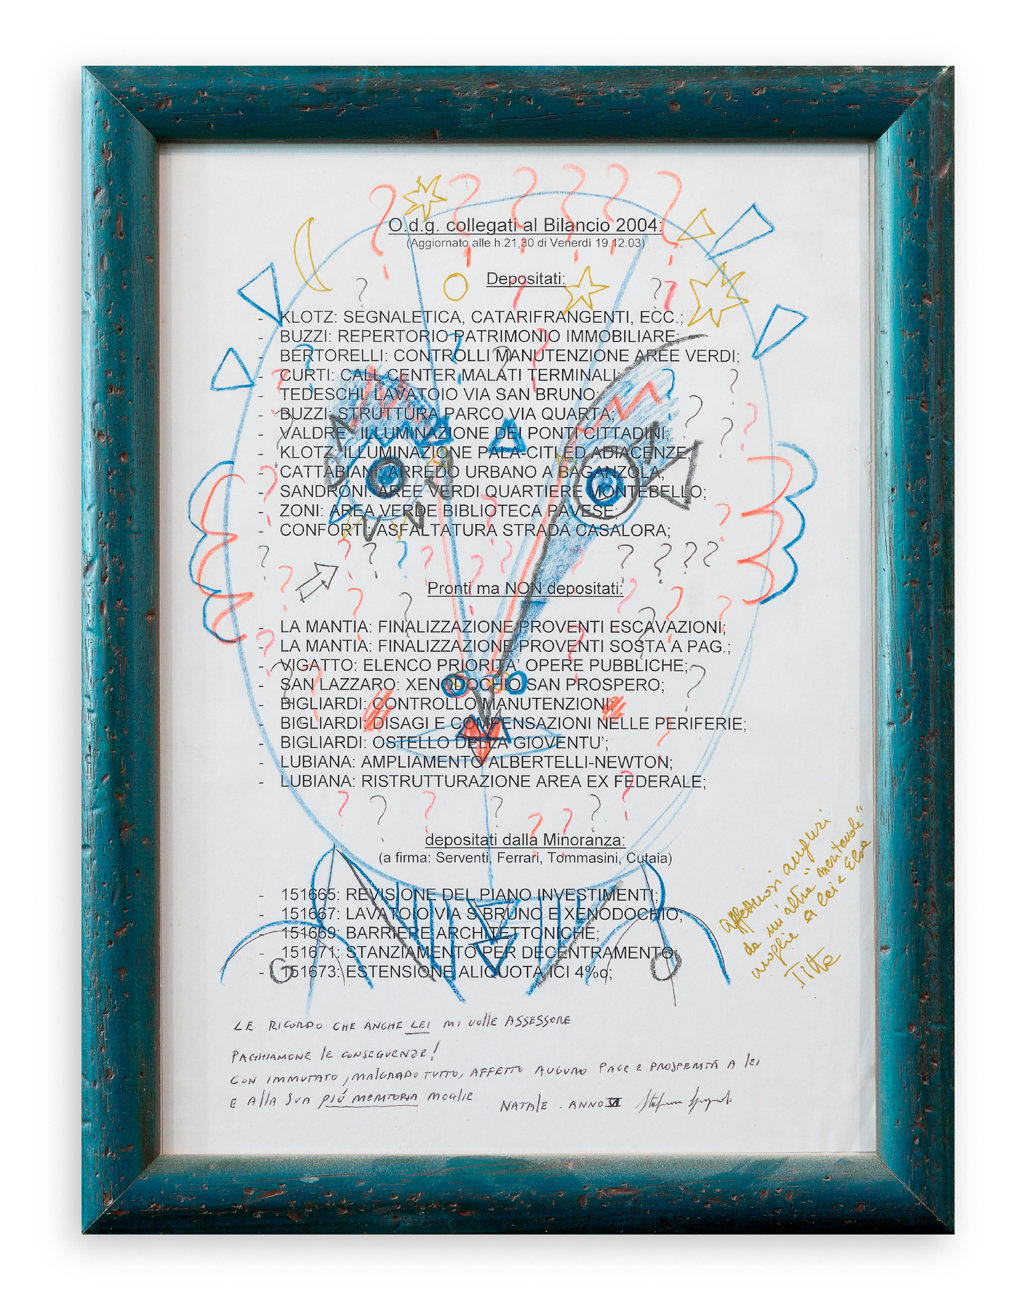 O.d.g. collegati al Bilancio 2004:
(Aggiornato alle h.21,30 di Venerdì 19.12.03)
Depositati:
- KLOTZ: SEGNALETICA, CATARIFRANGENTI, ECC.;
- BUZZI: REPERTORIO PATRIMONIO IMMOBILIARE;
- BERTORELLI: CONTROLLI MANUTENZIONE AREE VERDI;
- CURTI: CALL CENTER MALATI TERMINALI;
- TEDESCHI: LAVATOIO VIA SAN BRUNO;
- BUZZI: STRUTTURA PARCO VIA QUARTA;
- VALDRE': ILLUMINAZIONE DEI PONTI CITTADINI;
- KLOTZ: ILLUMINAZIONE PALA-CITI ED ADIACENZE;
- CATTABIANI: ARREDO URBANO A BAGANZOLA;
- SANDRONI: AREE VERDI QUARTIERE MONTEBELLO;
- ZONI: AREA VERDE BIBLIOTECA PAVESE;
- CONFORTI: ASFALTATURA STRADA CASALORA;
Pronti ma NON depositati:
- LA MANTIA: FINALIZZAZIONE PROVENTI ESCAVAZIONI;
- LA MANTIA: FINALIZZAZIONE PROVENTI SOSTA A PAG.;
- VIGATTO: ELENCO PRIORITA' OPERE PUBBLICHE;
- SAN LAZZARO: XENODOCHIO SAN PROSPERO;
- BIGLIARDI: CONTROLLO MANUTENZIONI;
- BIGLIARDI: DISAGI E COMPENSAZIONI NELLE PERIFERIE;
- BIGLIARDI: OSTELLO DELLA GIOVENTU';
- LUBIANA: AMPLIAMENTO ALBERTELLI-NEWTON;
- LUBIANA: RISTRUTTURAZIONE AREA EX FEDERALE;
depositati dalla Minoranza:
(a firma: Serventi, Ferrari, Tommasini, Cutaia)
- 151665: REVISIONE DEL PIANO INVESTIMENTI;
- 151667: LAVATOIO VIA S.BRUNO E XENODOCHIO;
- 151669: BARRIERE ARCHITETTONICHE;
- 151671: STANZIAMENTO PER DECENTRAMENTO;
- 151673: ESTENSIONE ALIQUOTA ICI 4%o;
affettuosi auguri
da un'altra "meritevole"
moglie a lei e Elsa
Titte
LE RICORDO CHE ANCHE LEI MI VOLLE ASSESSORE
PAGHIAMONE LE CONSEGUENZE!
CON IMMUTATO, MALGRADO TUTTO, AFFETTO AUGURO PACE E PROSPERITÀ A LEI
E ALLA SUA PIÚ MERITORIA MOGLIE
NATALE . ANNO VI